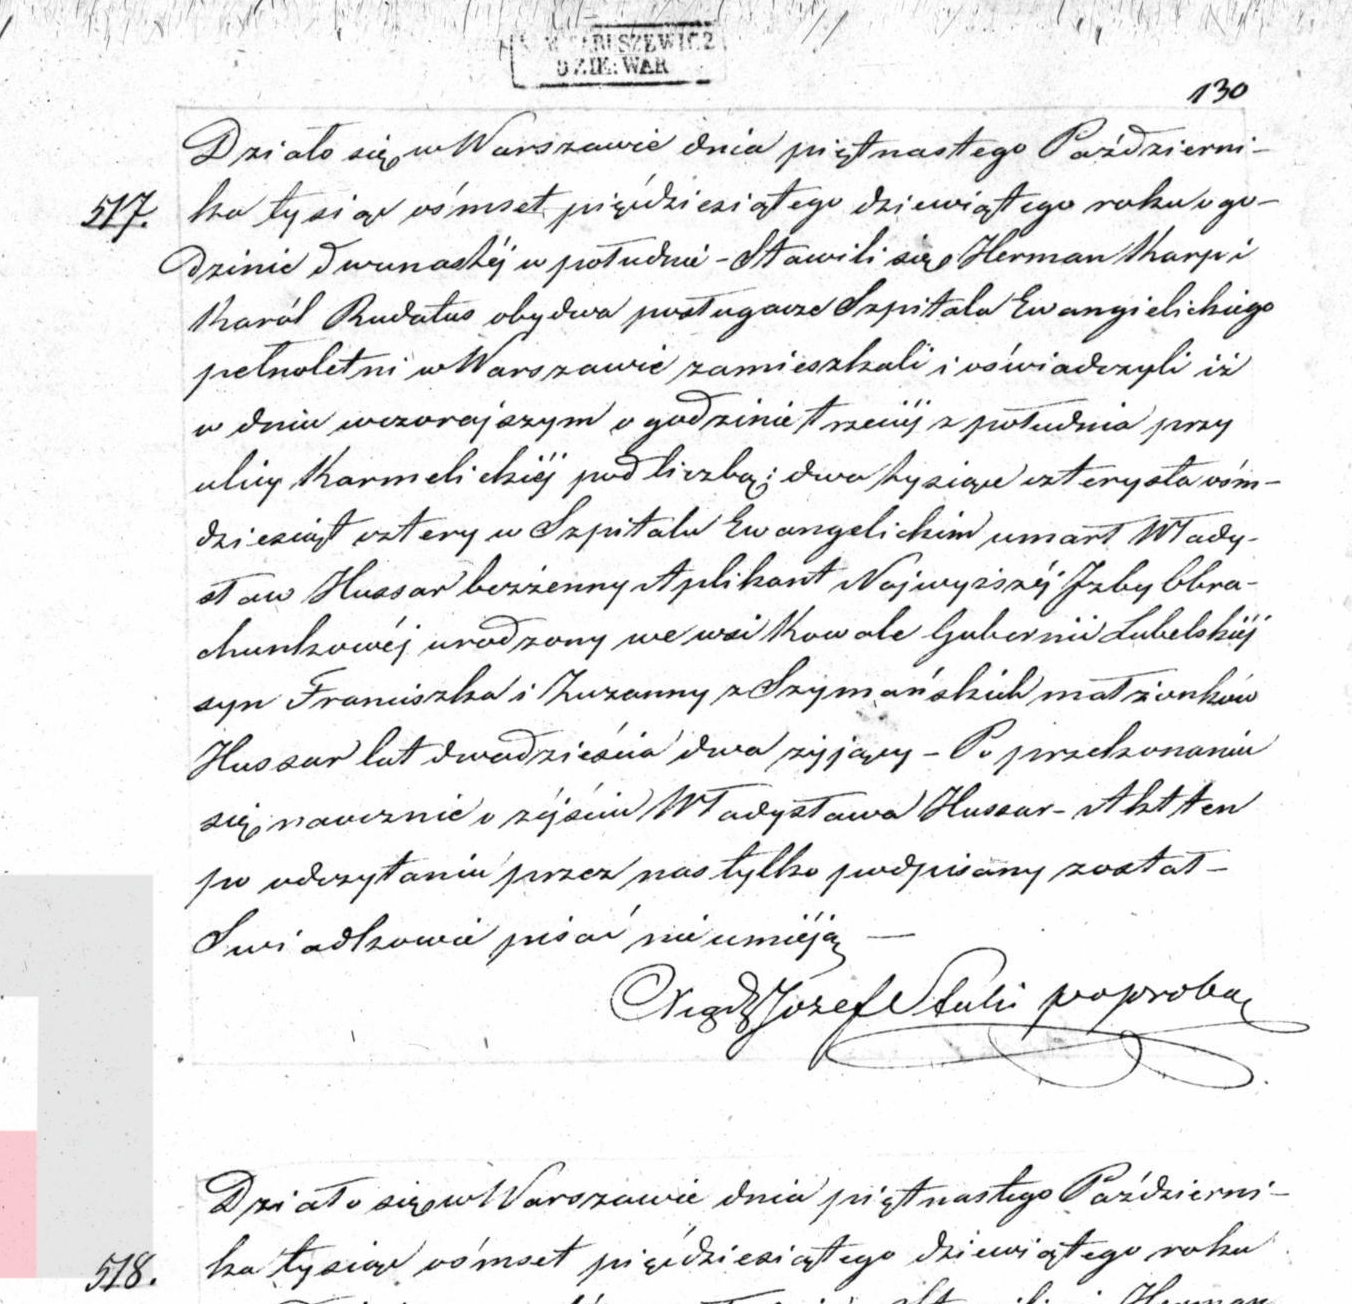 DZIE: WAR
130
Działo się w Warszawie dnia piętnastego Październi-
517. ka tysiąc ośmset pięćdziesiątego dziewiątego roku o go-
dzinie dwunastéj w południe – Stawili się Herman Karp i
Karól Rudatus obydwa posługacze Szpitala Ewangielickiego
pełnoletni w Warszawie zamieszkali i oświadczyli iż
w dniu wczorajszym o godzinie trzeciéj z południa przy
ulicy Karmelickiéj pod liczbą: dwa tysiące czterysta ośm-
dziesiąt cztery w Szpitalu Ewangelickim umarł Włady-
sław Hussar bezżenny Aplikant Najwyższéj Izby Obra-
chunkowéj urodzony we wsi Kowale Gubernii Lubelskiéj
syn Franciszka i Zuzanny z Szymańskich małżonków
Hussar lat dwadzieścia dwa żyjący – Po przekonaniu
się naocznie o zéjściu Władysława Hussar – Akt ten
po odczytaniu przez nas tylko podpisany został –
Swiadkowie pisać nie umiéją —
Józef
Działo się w Warszawie dnia piętnastego Październi-
518. ka tysiąc ośmset pięćdziesiątego dziewiątego roku
Herman